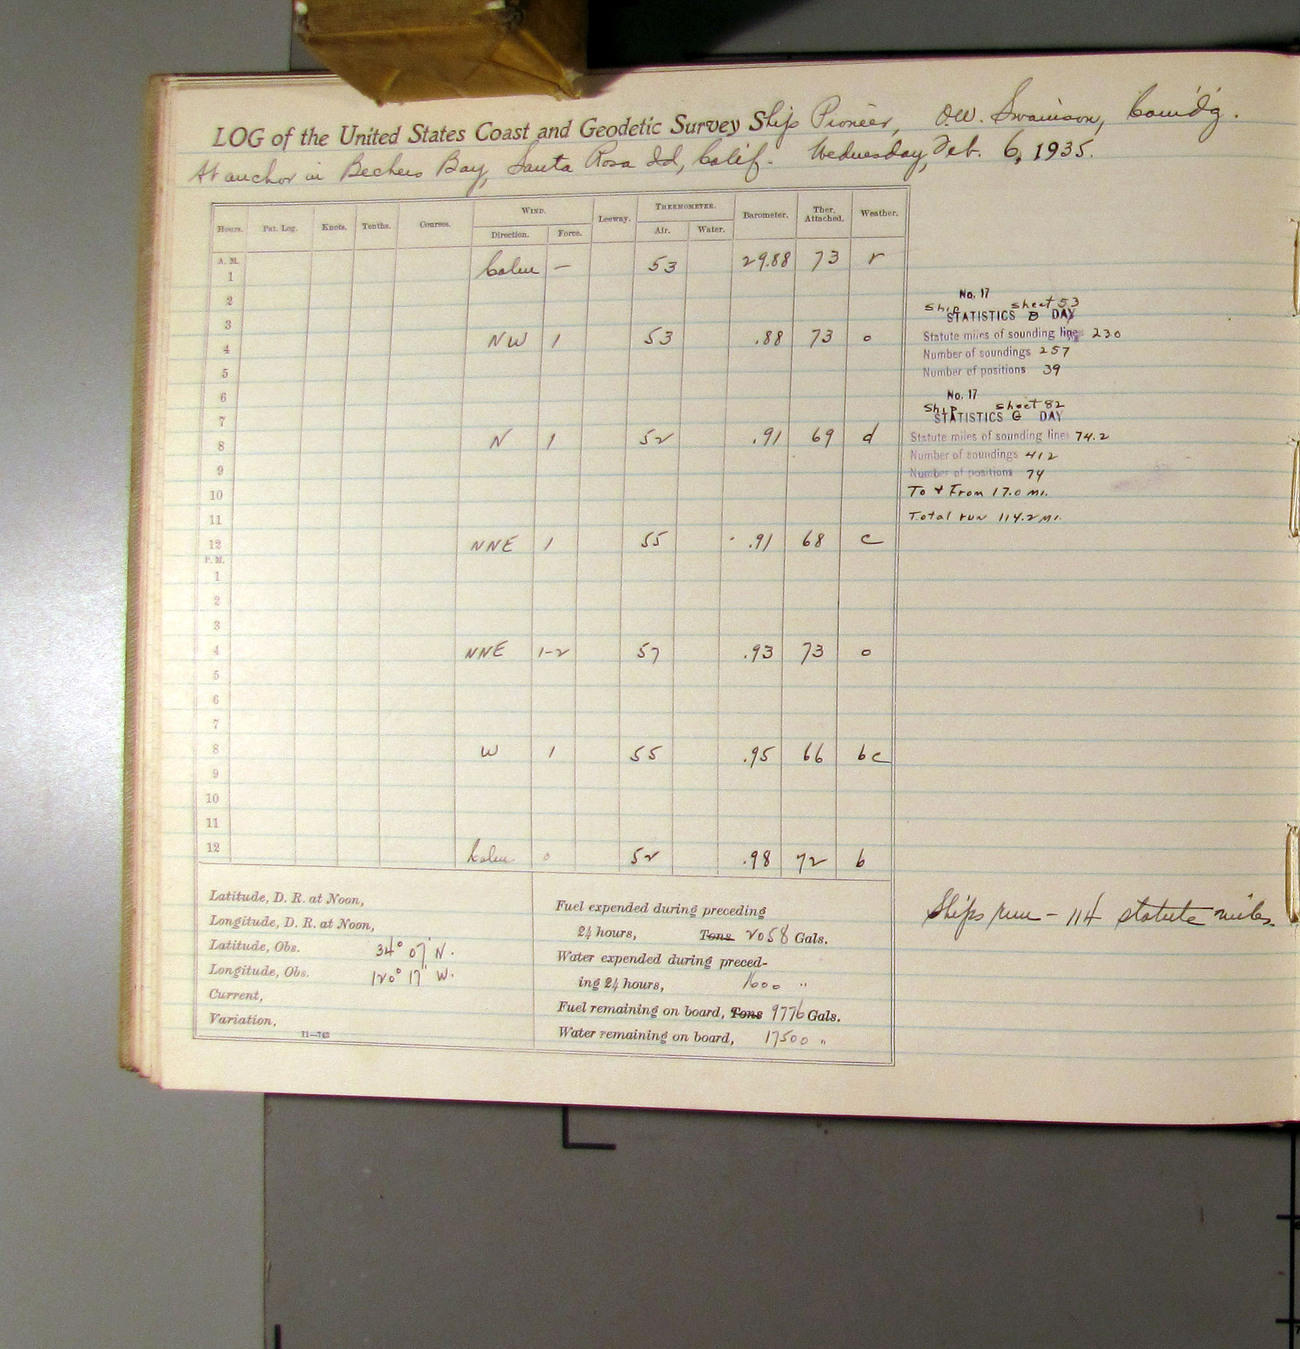 LOG of the United States Coast and Geodetic Survey Ship Pioneer, O.W. Swainson, Comd'g.
At anchor in Bechers Bay, Santa Rosa Id, Calif. Wednesday, Feb. 6, 1935.
Hours. Pat. Log. Knots. Tenths. Courses. WIND. Leeway. THERMOMETER. Barometer. Ther. Attached. Weather.
Direction. Force. Air. Water.
A. M.
1 Calm — 53 29.88 73 r
2
3
4 NW 1 53 .88 73 o
5
6
7
8 N 1 52 .91 69 d
9
10
11
12 NNE 1 55 .91 68 c
P. M.
1
2
3
4 NNE 1-2 57 .93 73 o
5
6
7
8 W 1 55 .95 66 bc
9
10
11
12 Calm 0 52 .98 72 b
No. 17
Ship sheet 53
STATISTICS B DAY
Statute miles of sounding line 23.0
Number of soundings 257
Number of positions 39
No. 17
Ship sheet 82
STATISTICS G DAY
Statute miles of sounding line 74.2
Number of soundings 412
Number of positions 74
To & From 17.0 mi.
Total run 114.2 mi.
Ships run - 114 statute miles.
Latitude, D. R. at Noon,
Longitude, D. R. at Noon,
Latitude, Obs. 34° 07' N.
Longitude, Obs. 120° 17' W.
Current,
Variation,
11—763
Fuel expended during preceding
24 hours, Tons 2058 Gals.
Water expended during preced-
ing 24 hours, 1600 "
Fuel remaining on board, Tons 9776 Gals.
Water remaining on board, 17500 "